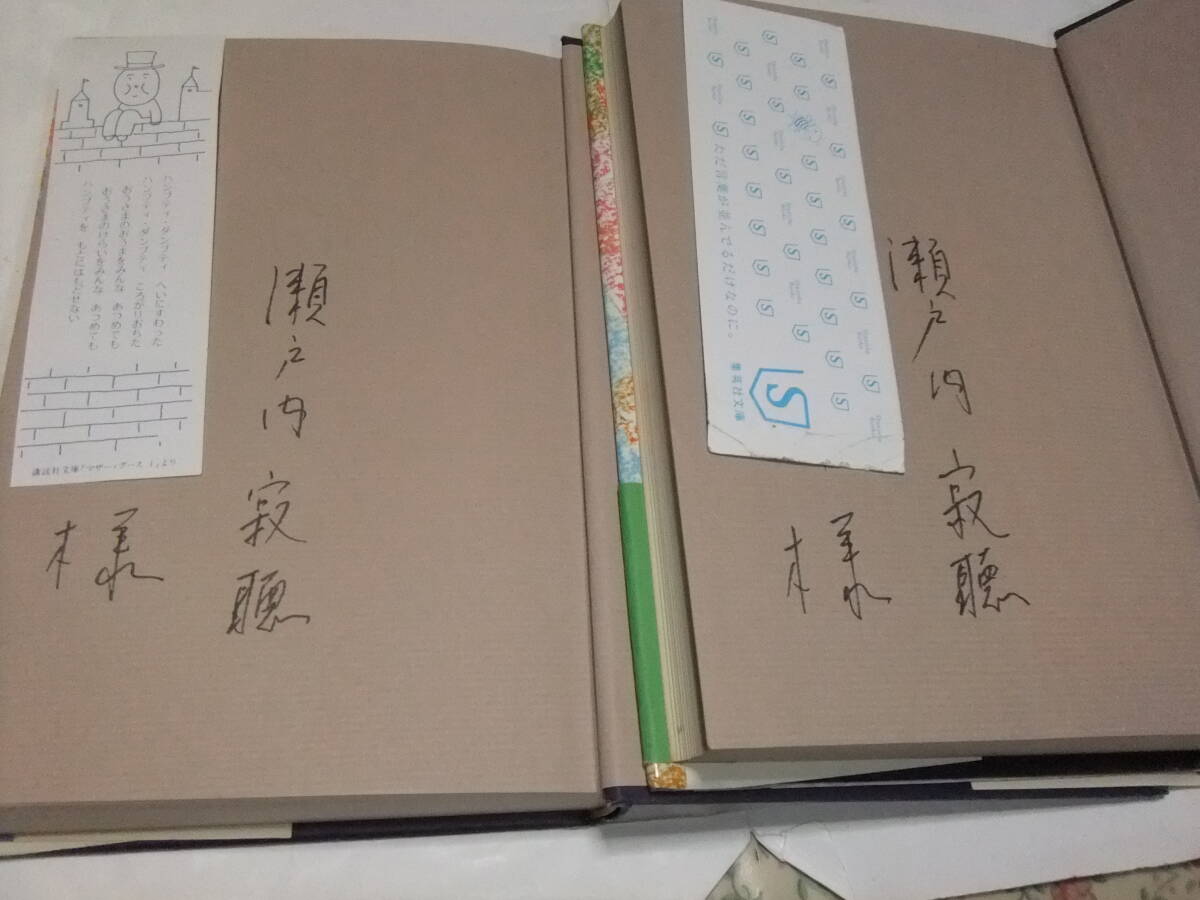 ハンプティ・ダンプティ へいにすわった
ハンプティ・ダンプティ ころがりおちた
おうさまのおうまをみんな あつめても
おうさまのけらいをみんな あつめても
ハンプティを もとにはもどせない
講談社文庫『マザー・グース 1』より
瀬戸内
寂聴
様
ただ言葉が並んでるだけなのに。
S
集英社文庫
瀬戸内
寂聴
様